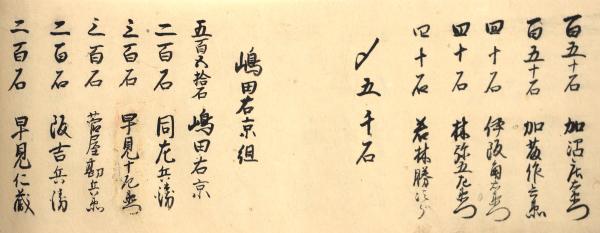 百五十石 加沼庄左衛門
百五十石 加茂作兵衛
四十石 伊阪角左衛門
四十石 林弥五左衛門
四十石 若林勝
〆五千石
嶋田右京組
五百五拾石 嶋田右京
二百石 同左兵衛
三百石 早見十左衛門
三百石 菅屋勘兵衛
二百石 阪吉兵衛
二百石 早見仁蔵